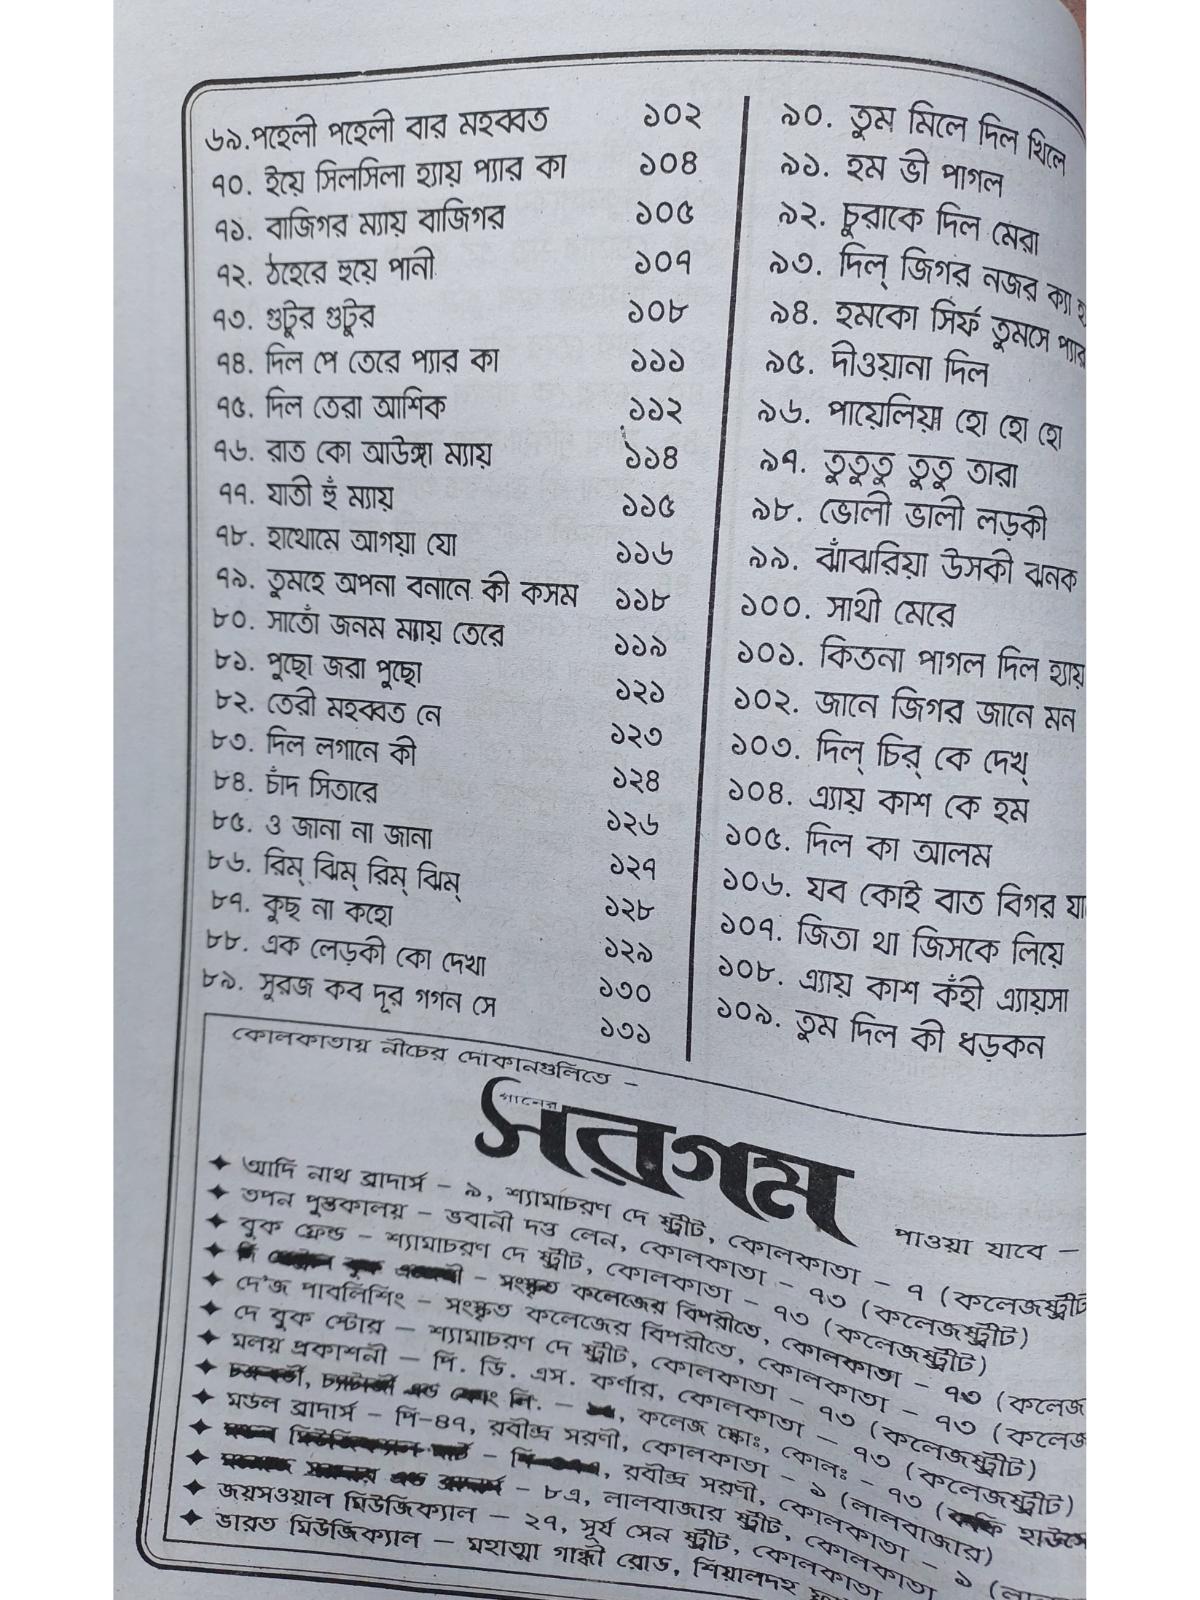 ৬৯. পহেলী পহেলী বার মহব্বত ১০২
৭০. ইয়ে সিলসিলা হ্যায় প্যার কা ১০৪
৭১. বাজিগর ম্যায় বাজিগর ১০৫
৭২. ঠহেরে হুয়ে পানী ১০৭
৭৩. গুটুর গুটুর ১০৮
৭৪. দিল পে তেরে প্যার কা ১১১
৭৫. দিল তেরা আশিক ১১২
৭৬. রাত কো আউঙ্গা ম্যায় ১১৪
৭৭. যাতী হুঁ ম্যায় ১১৫
৭৮. হাথোমে আগয়া যো ১১৬
৭৯. তুমহে অপনা বনানে কী কসম ১১৮
৮০. সাতোঁ জনম ম্যায় তেরে ১১৯
৮১. পুছো জরা পুছো ১২১
৮২. তেরী মহব্বত নে ১২৩
৮৩. দিল লগানে কী ১২৪
৮৪. চাঁদ সিতারে ১২৬
৮৫. ও জানা না জানা ১২৭
৮৬. রিম্ ঝিম্ রিম্ ঝিম্ ১২৮
৮৭. কুছ না কহো ১২৯
৮৮. এক লেড়কী কো দেখা ১৩০
৮৯. সুরজ কব দূর গগন সে ১৩১
৯০. তুম মিলে দিল খিলে
৯১. হম ভী পাগল
৯২. চুরাকে দিল মেরা
৯৩. দিল্ জিগর নজর ক্যা
৯৪. হমকো সির্ফ তুমসে প্যার
৯৫. দীওয়ানা দিল
৯৬. পায়েলিয়া হো হো হো
৯৭. তুতুতু তুতু তারা
৯৮. ভোলী ভালী লড়কী
৯৯. ঝাঁঝরিয়া উসকী ঝনক
১০০. সাথী মেরে
১০১. কিতনা পাগল দিল হ্যায়
১০২. জানে জিগর জানে মন
১০৩. দিল্ চির্ কে দেখ্
১০৪. এ্যায় কাশ কে হম
১০৫. দিল কা আলম
১০৬. যব কোই বাত বিগর
১০৭. জিতা থা জিসকে লিয়ে
১০৮. এ্যায় কাশ কঁহী এ্যায়সা
১০৯. তুম দিল কী ধড়কন
কোলকাতায় নীচের দোকানগুলিতে –
গানের
সরগম
পাওয়া যাবে –
✦ আদি নাথ ব্রাদার্স – ৯, শ্যামাচরণ দে ষ্ট্রীট, কোলকাতা – ৭ (কলেজষ্ট্রীট
✦ তপন পুস্তকালয় – ভবানী দত্ত লেন, কোলকাতা – ৭৩ (কলেজষ্ট্রীট)
✦ বুক ফ্রেন্ড – শ্যামাচরণ দে ষ্ট্রীট, কোলকাতা – ৭৩ (কলেজষ্ট্রীট)
✦ – সংস্কৃত কলেজের বিপরীতে, কোলকাতা – ৭৩ (কলেজ
✦ দে'জ পাবলিশিং – সংস্কৃত কলেজের বিপরীতে, কোলকাতা – ৭৩ (কলেজ
✦ দে বুক স্টোর – শ্যামাচরণ দে ষ্ট্রীট, কোলকাতা – ৭৩ (কলেজষ্ট্রীট)
✦ মলয় প্রকাশনী – পি. ডি. এস. কর্ণার, কোলকাতা – ৭৩ (কলেজষ্ট্রীট)
✦ – কলেজ স্কোঃ, কোলঃ – ৭৩ হাউসে
✦ মন্ডল ব্রাদার্স – পি-৪৭, রবীন্দ্র সরণী, কোলকাতা – ১ (লালবাজার)
✦ – রবীন্দ্র সরণী, কোলকাতা – ১
✦ – ৮এ, লালবাজার ষ্ট্রীট, কোলকাতা
✦ জয়সওয়াল মিউজিক্যাল – ২৭, সূর্য সেন ষ্ট্রীট, কোলকাতা
✦ ভারত মিউজিক্যাল – মহাত্মা গান্ধী রোড, শিয়ালদহ